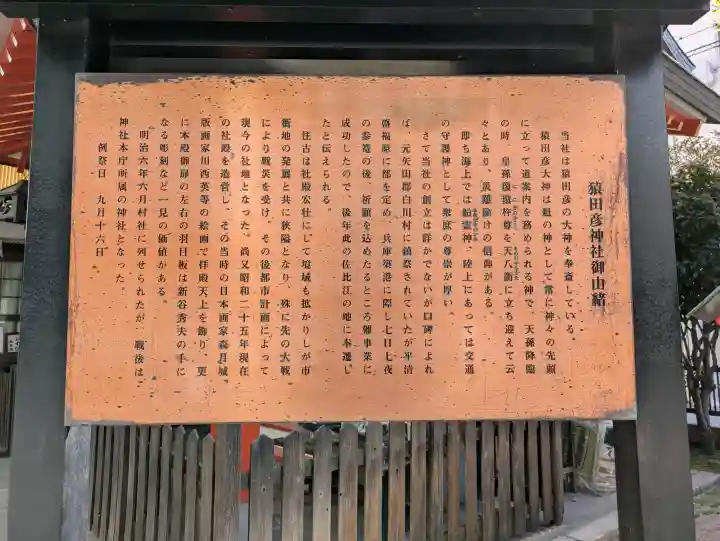 猿田彦神社御由緒
当社は猿田彦の大神を奉斎している。
猿田彦大神は道の神として常に神々の先頭
に立って道案内を務められる神で、天孫降臨
の時、皇孫瓊瓊杵尊を天八衢に立ち迎えて云
々とあり、災難除けの信仰がある。
即ち海上では船霊神、陸上にあっては交通
の守護神として衆庶の尊崇が厚い。
さて当社の創立は詳かでないが口碑によれ
ば、元矢田郡白川村に鎮祭されていたが平清
盛福原に都を定め、兵庫築港に際し七日七夜
の参篭の後、祈願を込めたるところ難事業に
成功したので、後年此の佐比江の地に奉遷し
たと伝えられる。
往古は社殿宏壮にして境域も拡かりしが市
街地の発展と共に狭隘となり、殊に先の大戦
により戦災を受け、その後都市計画によって
現今の社地となった。尚又昭和二十五年現在
の社殿を造営し、その当時の日本画家森月城、
版画家川西英等の絵画で拝殿天上を飾り、更
に本殿御扉の左右の羽目板は新谷秀夫の手に
なる彫刻など一見の価値がある。
明治六年六月村社に列せられたが、戦後は
神社本庁所属の神社となった。
例祭日　九月十六日